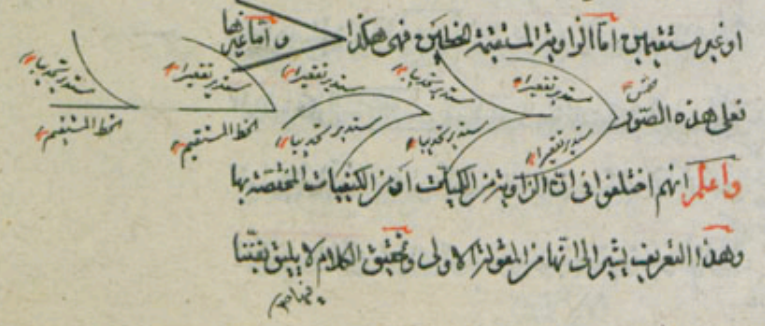 او غير مستقيمين اما الزاوية المستقيمة الخطين فهى هكذا واما غيرها
فعلى هذه الصور
مستدير تقعيرا مستدير تحديبا مستدير تقعيرا مستدير تقعيرا مستدير تحديبا
مستدير تقعيرا مستدير تحديبا مستدير تحديبا الخط المستقيم الخط المستقيم
واعلم انهم اختلفوا فى ان الزاوية من الكميات او من الكيفيات المختصة بها
وهذا التعريف يشير الى انها من المقولة الاولى وتحقيق الكلام لا يليق بفننا